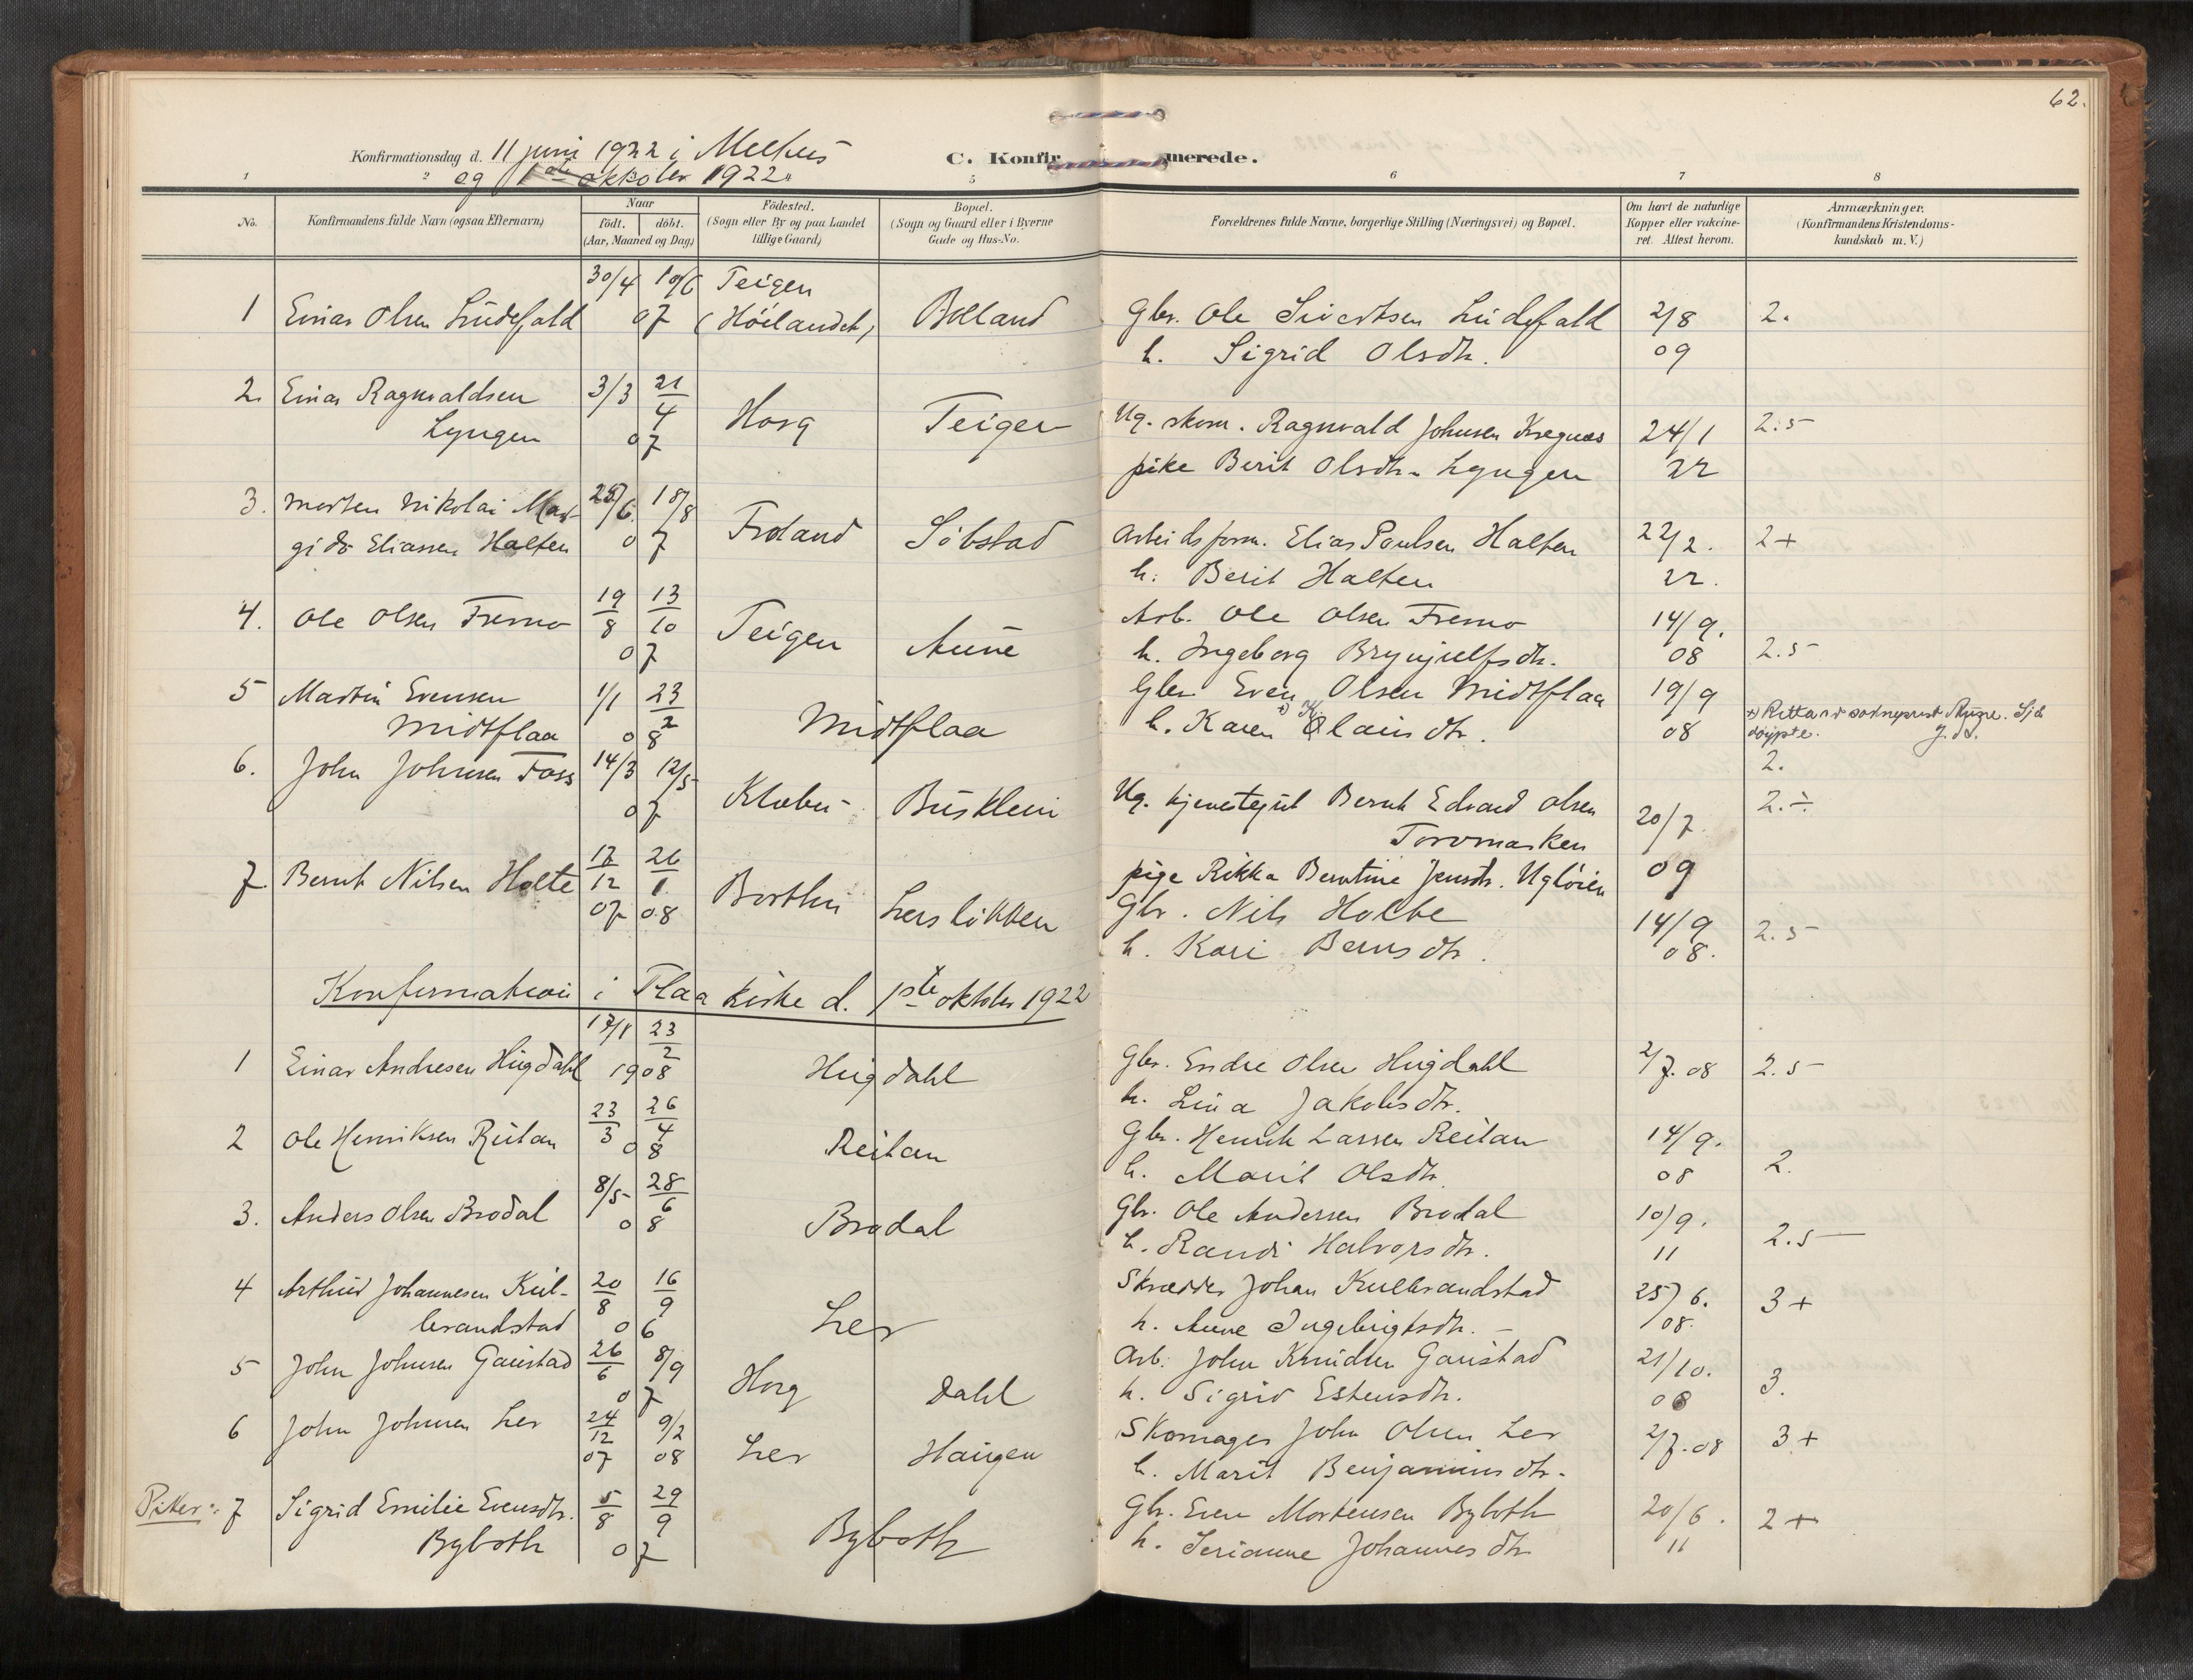 62.
Konfirmationsdag d. 11 juni 1922 i Melhus
og 1ste oktober 1922.
C. Konfirmerede.
1 2 5 6 7 8
No.
Konfirmandens fulde Navn (ogsaa Efternavn)
Naar
født. døbt.
(Aar, Maaned og Dag)
Fødested.
(Sogn eller By og paa Landet
tillige Gaard)
Bopæl.
(Sogn og Gaard eller i Byerne
Gade og Hus-No.
Forældrenes fulde Navne, borgerlige Stilling (Næringsvei) og Bopæl.
Om havt de naturlige
Kopper eller vakcine-
ret. Attest herom.
Anmærkninger.
(Konfirmandens Kristendoms-
kundskab m. V.)
30/4 10/6 Teigen
1 Einar Olsen Lindefald 07 (Höilandet) Bolland Gbr. Ole Sivertsen Lindefald 2/8 2.
h. Sigrid Olsdtr. 09
2. Einar Ragnvaldsen 3/3 21/4 Horg Teigen Ug. skom. Ragnvald Johnsen Kregnes 24/1 2.5
Lyngen 07 pike Berit Olsdtr. Lyngen 22
3. Morten Nikolai Mar- 25/6 18/8 Froland Söbstad Arbeidsform. Elias Paulsen Halten 22/2. 2+
gido Eliassen Halten 07 h. Berit Halten 22.
4. Ole Olsen Fremo 19/8 13/10 Teigen Aune Arb. Ole Olsen Fremo 14/9.
07 h. Ingeborg Brynjulfsdtr. 08 2.5
5 Martin Evensen 1/1 23/2 Midtflaa Gbr Even Olsen Midtflaa 19/9
Midtflaa 08 h. Karen +) K Olainsdtr. 08 +) Retta av sokneprest
døypte.
2.
6. John Johnsen Foss 14/3 12/5 Klæbu Busklein Ug. tjenestegut Bernt Edvard Olsen 20/7 2.÷
07 Torvmarken
pige Rikka Berntine Jensdtr. Uglöien 09
7 Bernt Nilsen Holte 17/12 26/1 Borthn Lersløkken Gbr. Nils Holte 14/9 2.5
07 08 h. Kari Bernsdtr. 08.
Konfirmation i Flaa kirke d. 1ste oktober 1922
1 Einar Andresen Hugdahl 17/1 23/2 Hugdahl Gbr. Endre Olsen Hugdahl 2/7.08 2.5
1908 h. Lina Jakobsdtr.
2 Ole Henriksen Reitan 23/3 26/4 Reitan Gbr. Henrik Larsen Reitan 14/9.
08 h. Marit Olsdtr. 08 2.
3. Anders Olsen Brodal 8/5 28/6 Brodal Gbr. Ole Andersen Brodal 10/9.
08 h. Randi Halvorsdtr. 11 2.5
4 Arthur Johannesen Kul- 20/8 16/9 Ler Skrædder Johan Kulbrandstad 25/6. 3+
brandstad 06 h. Anne Ingebrigtsdtr. 08.
5 John Johnsen Gaustad 26/6 8/9 Horg Dahl Arb. John Knudsen Gaustad 21/10.
07 h. Sigrid Estensdtr. 08 3.
6 John Johnsen Ler 24/12 9/2 Ler Haugen Skomager John Olsen Ler 2/7.08 3+
07 08 h. Marit Benjaminsdtr.
Piker: 7 Sigrid Emilie Evensdtr. 5/8 29/9 Byboth Gbr. Even Mortensen Byboth 20/6. 2+
Byboth 07 h. Serianne Johannesdtr. 11